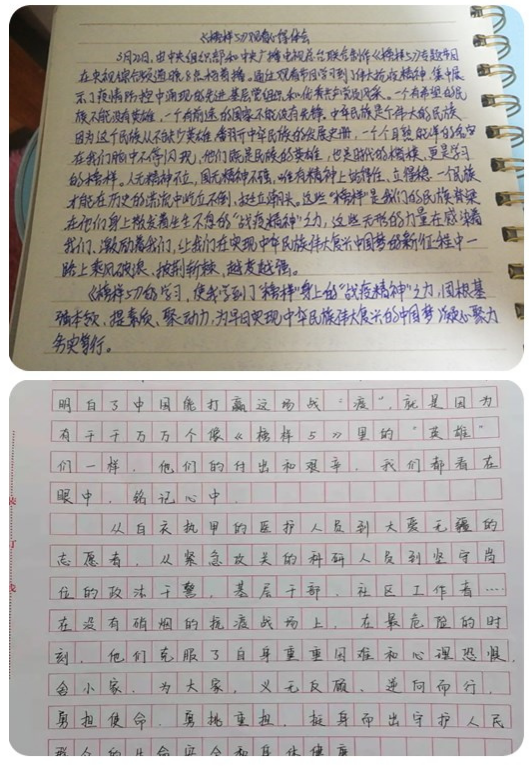 《榜样5》观看心得体会
5月21日,由中央组织部和中央广播电视总台联合制作《榜样5》专题节目
在央视综合频道晚8点档首播。通过观看节目学习到了伟大抗疫精神,集中展
示了疫情防控中涌现的先进基层党组织和优秀共产党员风采。一个有希望的民
族不能没有英雄,一个有前途的国家不能没有先锋。中华民族是个伟大的民族
因为这个民族从不缺少英雄
在我们脑中不停闪现,他们既是民族的英雄,也是时代的楷模,更是学习
的榜样。人无精神不立,国无精神不强,唯有精神上站得住、立得稳,一个民族
才能在历史的洪流中屹立不倒,挺立潮头。这些"榜样"是我们的民族脊梁
在他们身上散发着生生不息的"战疫精神"之力,这些无形的力量在感染着
我们、激励着我们,让我们在实现中华民族伟大复兴中国梦的新征程中一
路上乘风破浪、披荆斩棘,越发越强。
《榜样5》的学习,使我学到了"榜样"身上的"战疫精神"之力,固根基
强本领、提素质、聚动力,为早日实现中华民族伟大复兴的中国梦凝心聚力
务实笃行。
明白了中国能打赢这场战"疫",就是因为
有千千万万个像《榜样5》里的"英雄"
们一样,他们的付出和艰辛,我们都看在
眼中,铭记心中。
从白衣执甲的医护人员到大爱无疆的
志愿者,从紧急攻关的科研人员到坚守岗
位的政法干警,基层干部,社区工作者……
在没有硝烟的抗疫战场上,在最危险的时
刻,他们克服了自身重重困难和心理恐惧,
舍小家,为大家,义无反顾,逆向而行,
勇担使命,勇挑重担,挺身而出守护人民
群众的生命安全和身体健康